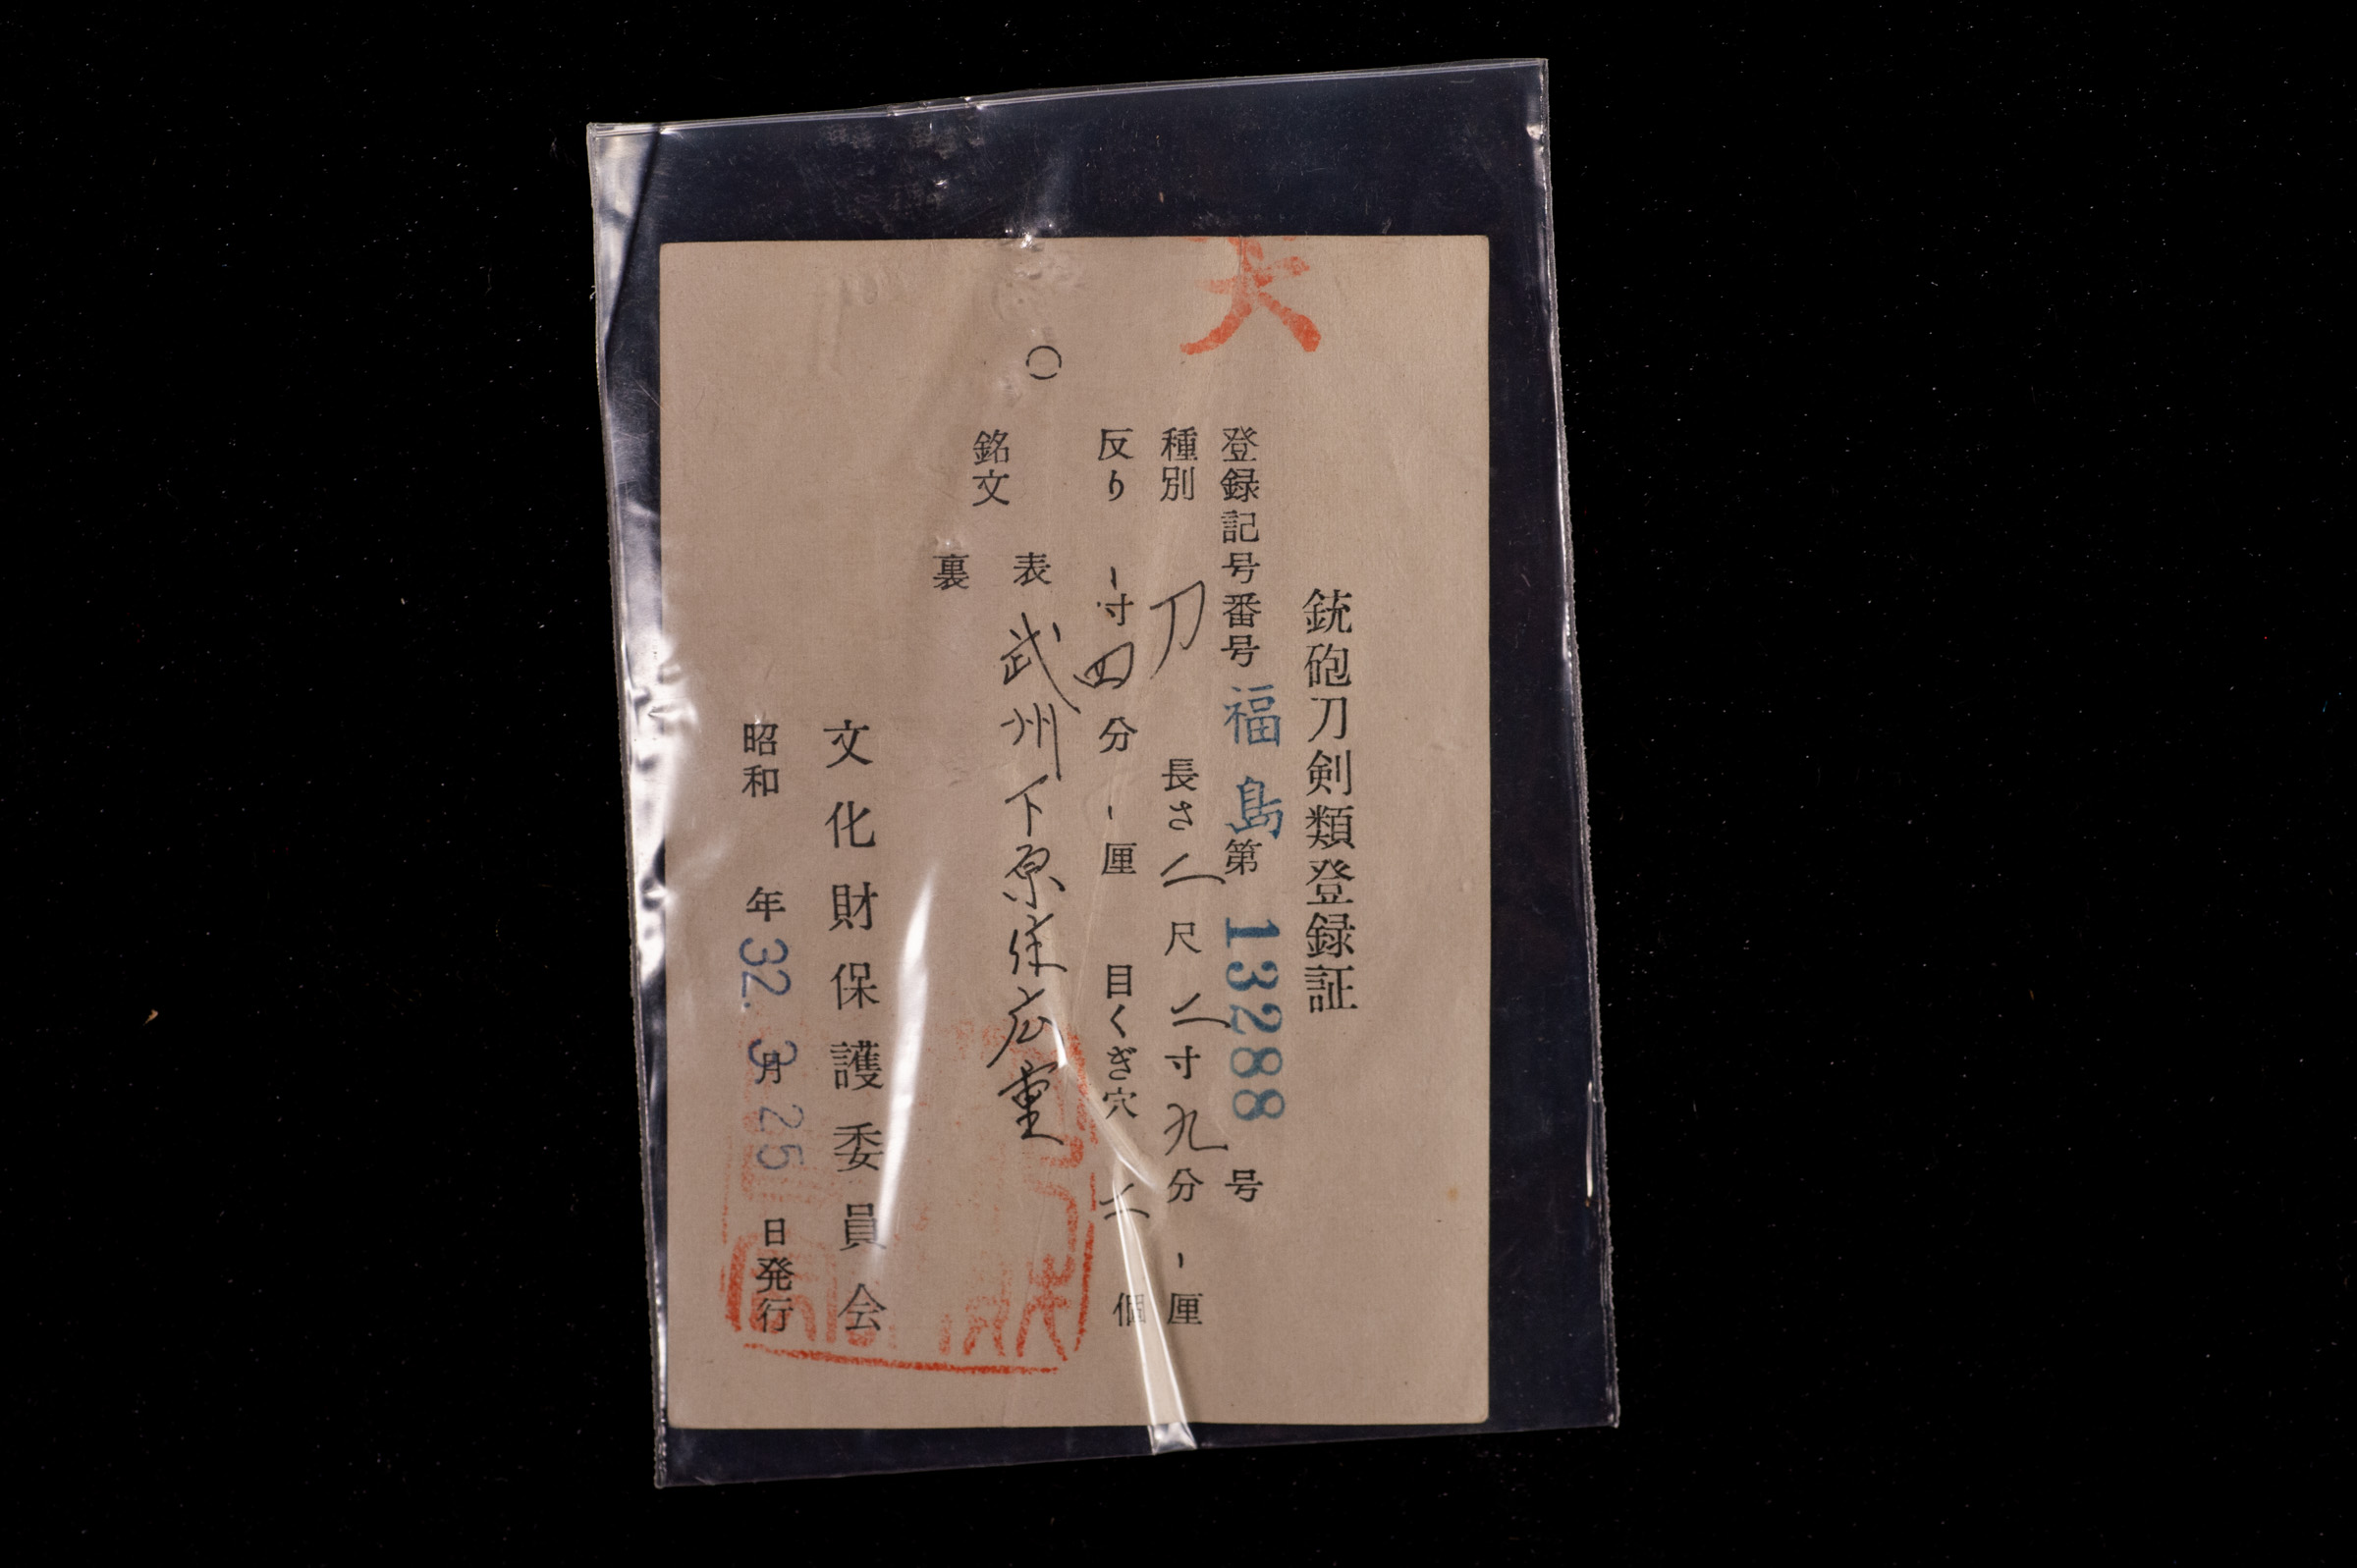 銃砲刀剣類登録証
登録記号番号 福島 第 13288 号
種別 刀 長さ 二尺 二寸 九分 - 厘
反り - 寸 四分 - 厘 目くぎ穴 二 個
銘文
表 武州下原住広重
裏
文化財保護委員会
昭和 年 32. 3 月 25 日発行